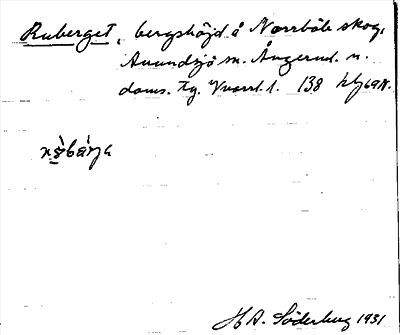 Ruberget, bergshöjd å Norrböle skog,
Anundsjö sn. Ångerml. n.
doms. tg. Kvarnl. 1. 138
H. A. Söderberg 1931